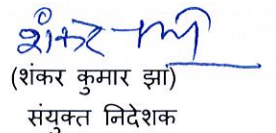 (शंकर कुमार झा)
संयुक्त निदेशक